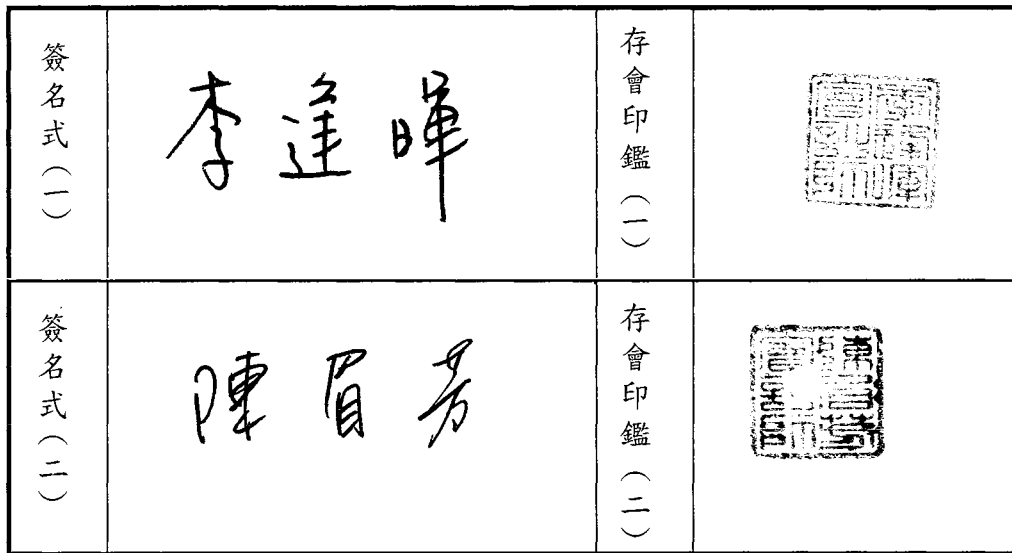 簽名式（一）
李逢暉
存會印鑑（一）
簽名式（二）
陳眉芳
存會印鑑（二）